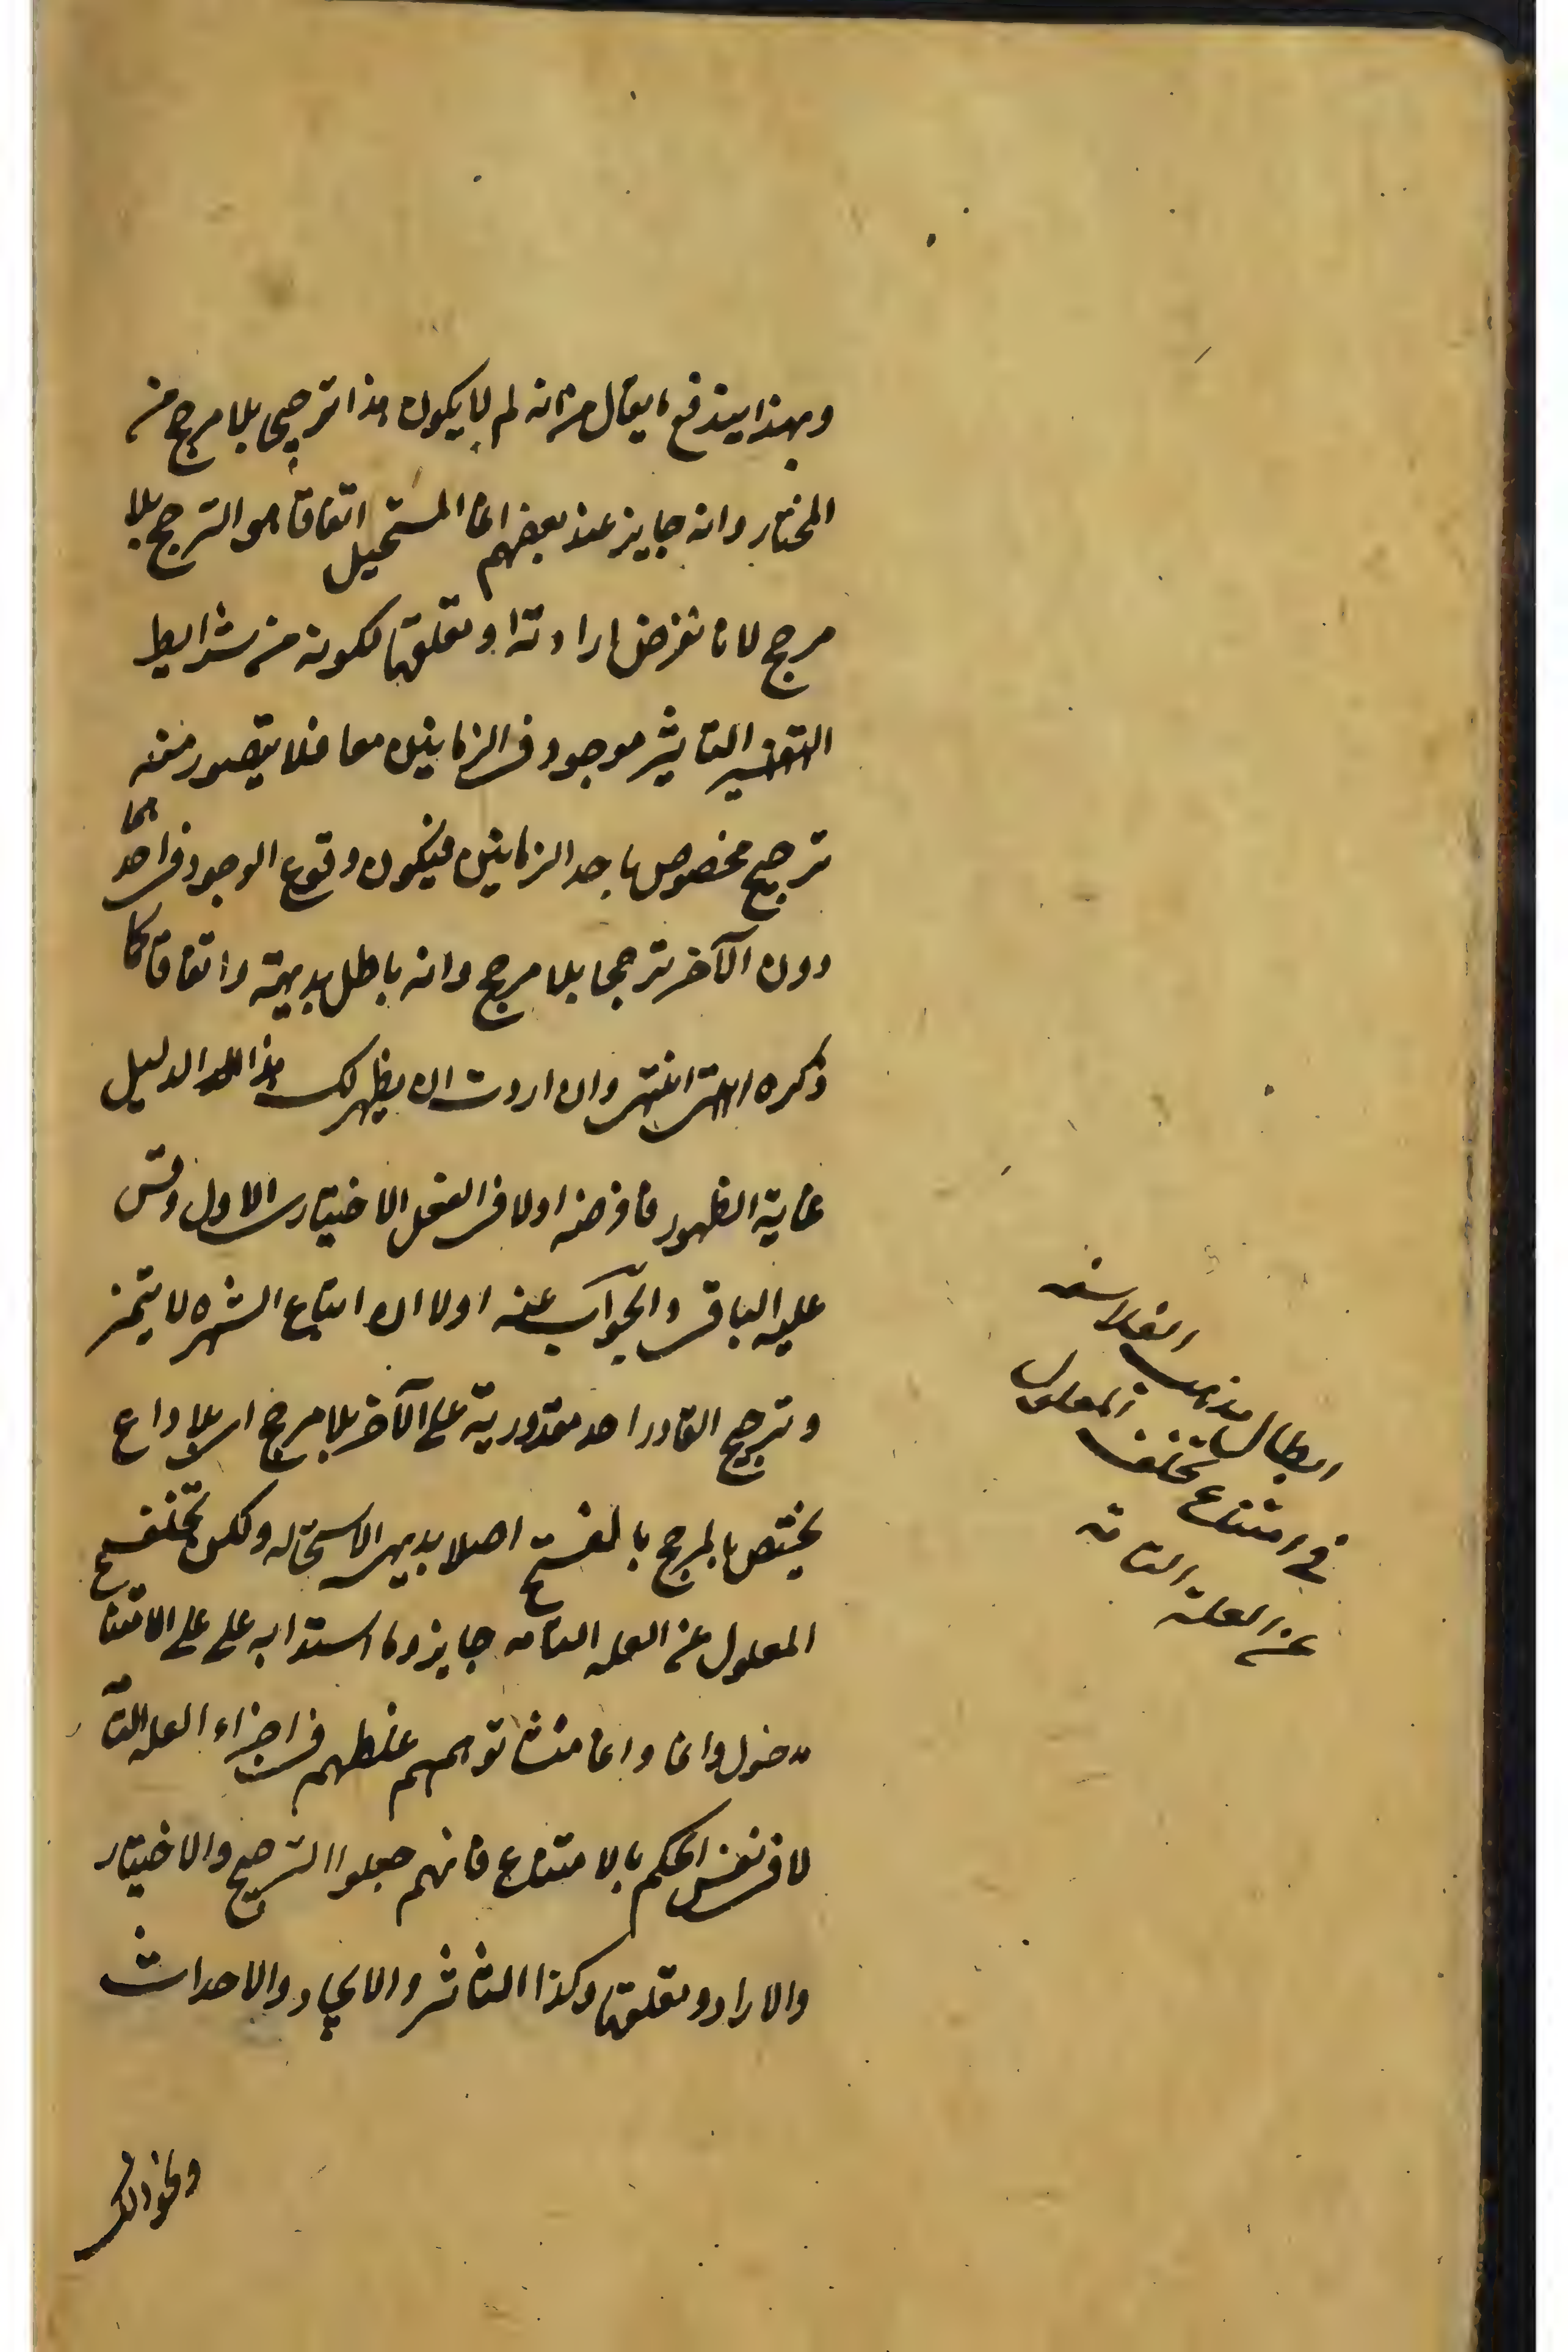 وبهذا يندفع ما يقال من انه لم لا يكون هذا ترجيحا بلا مرجح من
المختار وانه جايز عند بعضهم انما المستحيل اتفاقا هو الترجح بلا
مرجح لانا نفرض ارادته او تعلقها لكونه من شرايط
التاثير موجود في الزمانين معا فلا يتصور منه
ترجيح مخصوص باحد الزمانين فيكون وقوع الوجود في احدهما
دون الآخر ترجحا بلا مرجح وانه باطل بديهة واتفاقا كما
ذكره انتهى وان اردت ان يظهر لك هذا الدليل
غاية الظهور فافرضه اولا في الفعل الاختياري الاول وقس
عليه الباقي والجواب عنه اولا ان اتباع الشهره لا يتمز
وترجيح القادر احد مقدوريه على الآخر بلا مرجح اي بلا داع
يختص بالمرجح بالفتح اصلا بديهي الاستحاله ولكن تخلف
المعلول عن العله التامه جايز وما استدلوا به على على الامتناع
مدخول وانما وانما منشا توهمهم غلطهم في اجزاء العله التامه
لا في نفس الحكم بالامتناع فانهم جعلوا الترجيح والاختيار
والاراده وتعلقها وكذا التاثير والايجاد والاحداث
ونحو ذلك
ابطال مذهب الفلاسفه
في امتناع تخلف المعلول
عن العله التامه